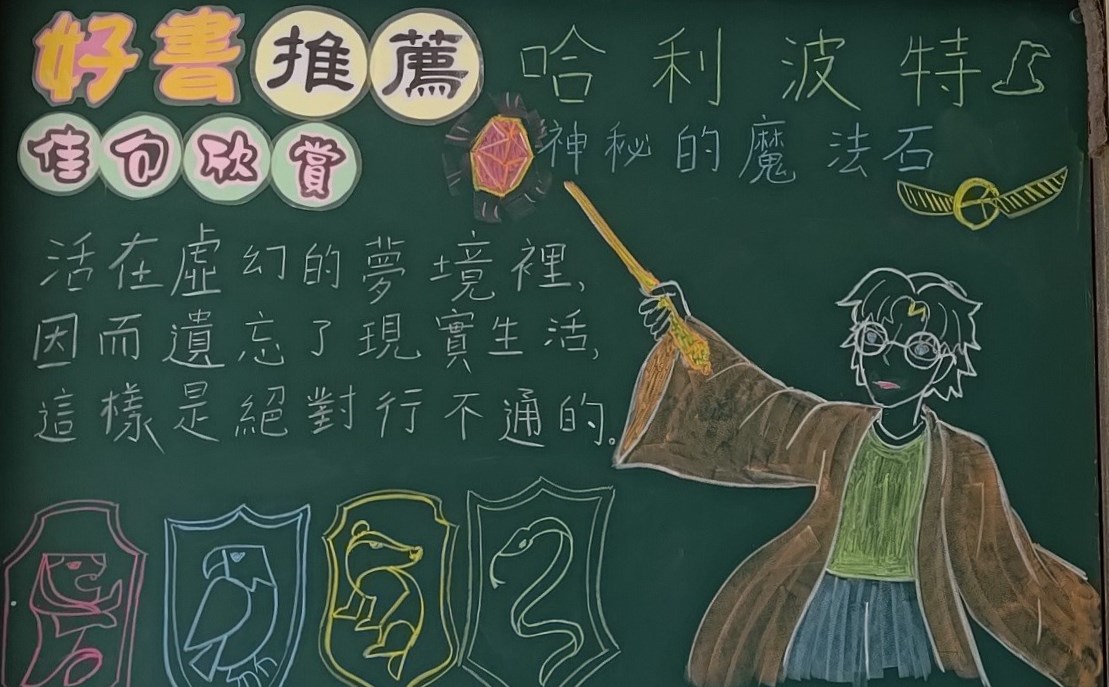 好書推薦
哈利波特
佳句欣賞
神秘的魔法石
活在虛幻的夢境裡,
因而遺忘了現實生活,
這樣是絕對行不通的。